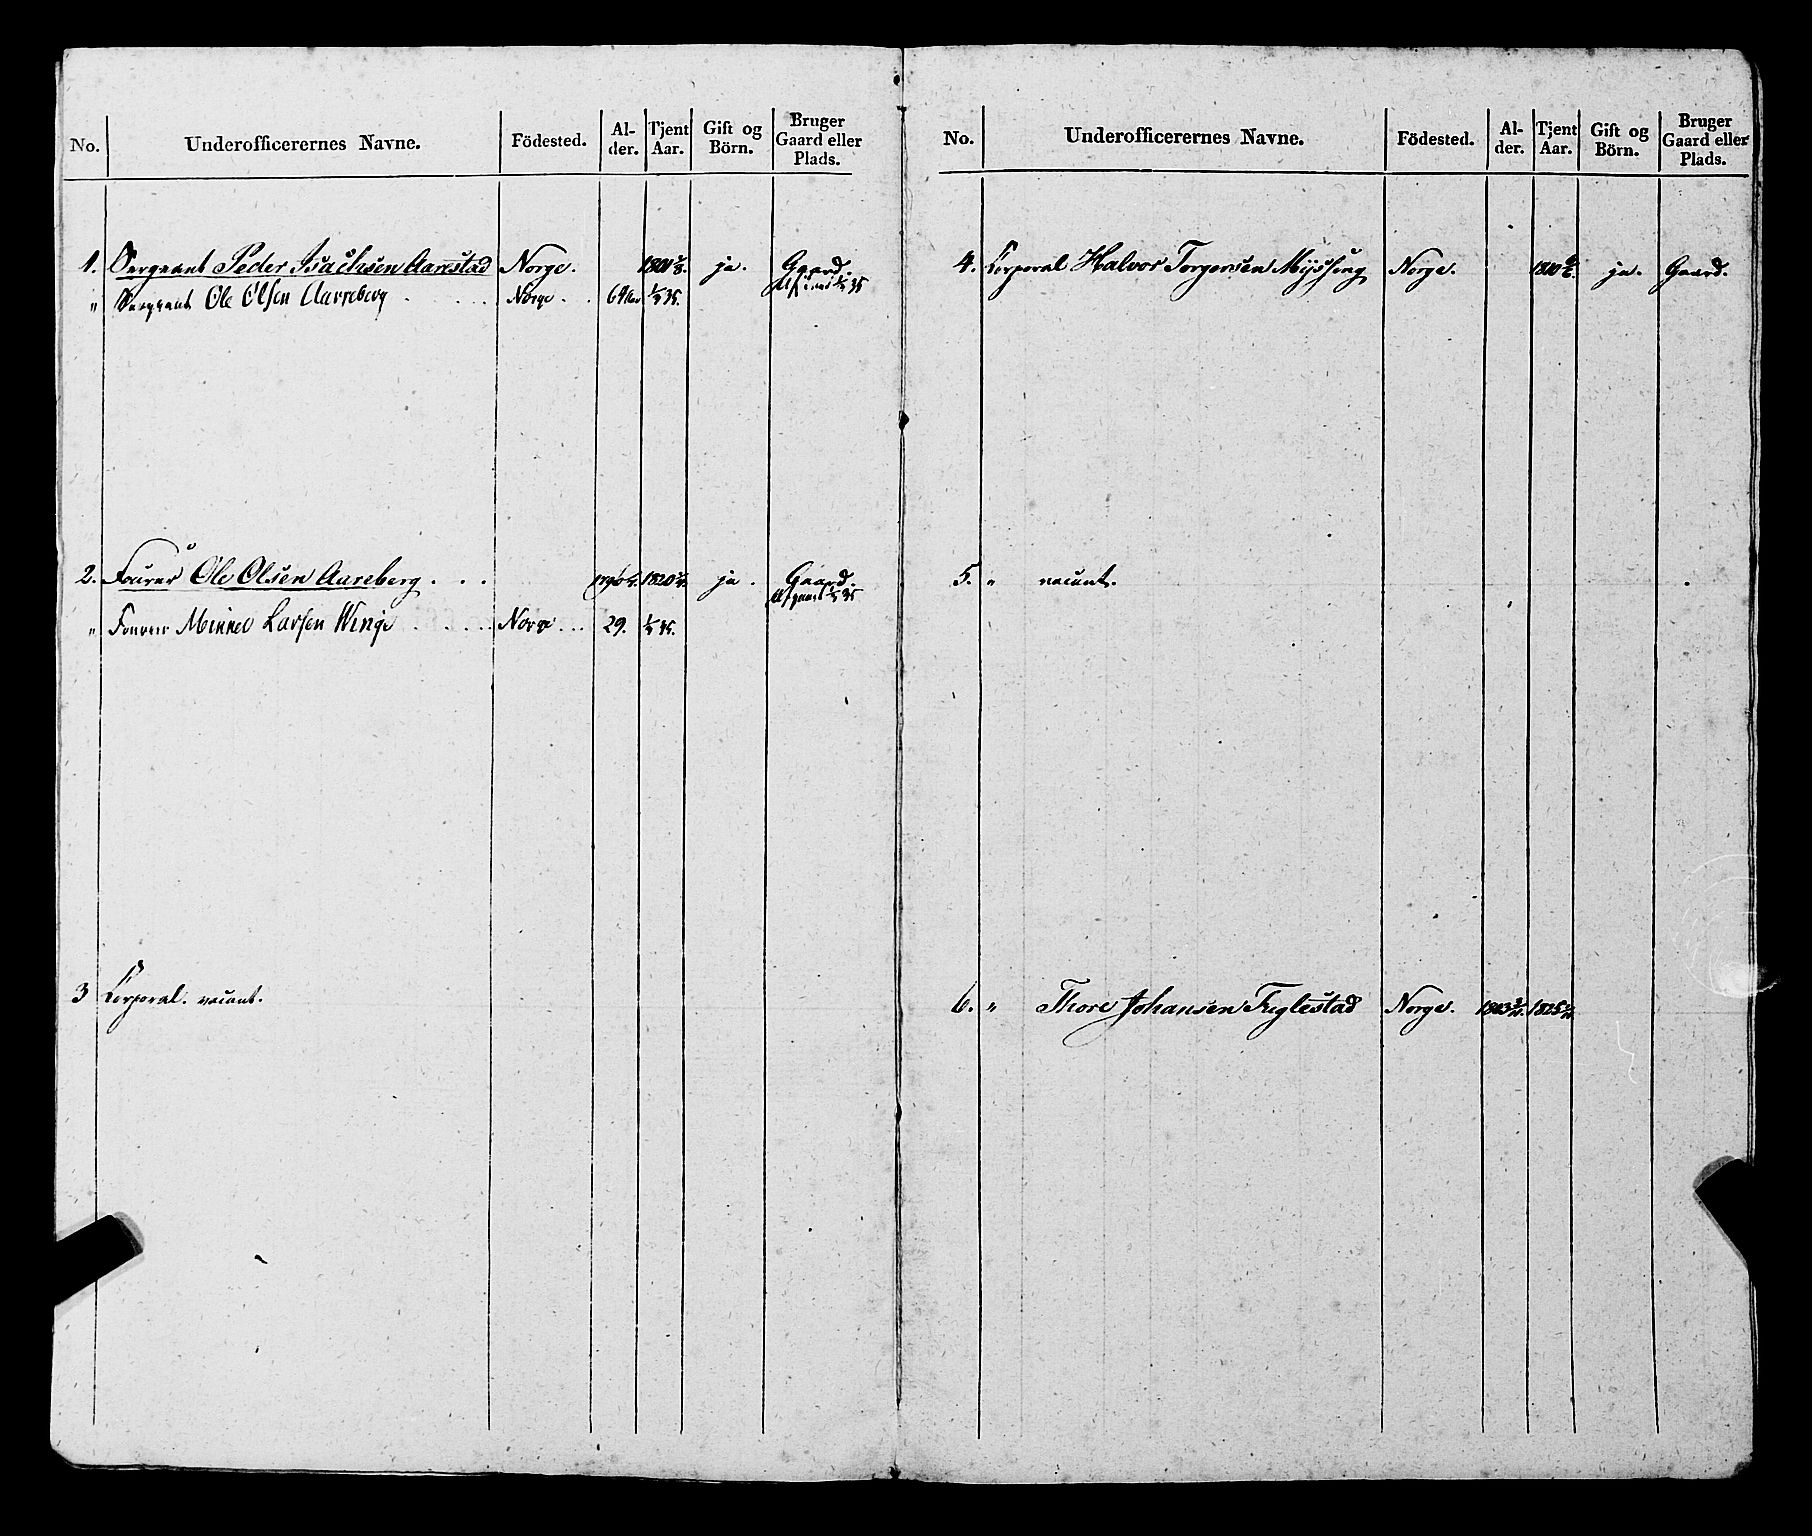 No. Underofficerernes Navne. Födested. Al-der. Tjent Aar. Gift og Börn. Bruger Gaard eller Plads.
1. Sergeant Peder Isachsen Aarrestad Norge. 1801 ja. Gaard.
" Sergeant Ole Olsen Aarreberg . . . . Norge . . 35.
2. Fourer Ole Olsen Aareberg . . . 1820 ja. Gaard.
Afgaaet 35
" Fourer Larsen Winge . . . . Norge . . . 29. 35.
3 Corporal. vacant.
No. Underofficerernes Navne. Födested. Al-der. Tjent Aar. Gift og Börn. Bruger Gaard eller Plads.
4. Corporal Halvor Torgersen Norge. 1810 ja. Gaard.
5. " vacant.
6. " Thore Johansen Fuglestad Norge. 1803 1825